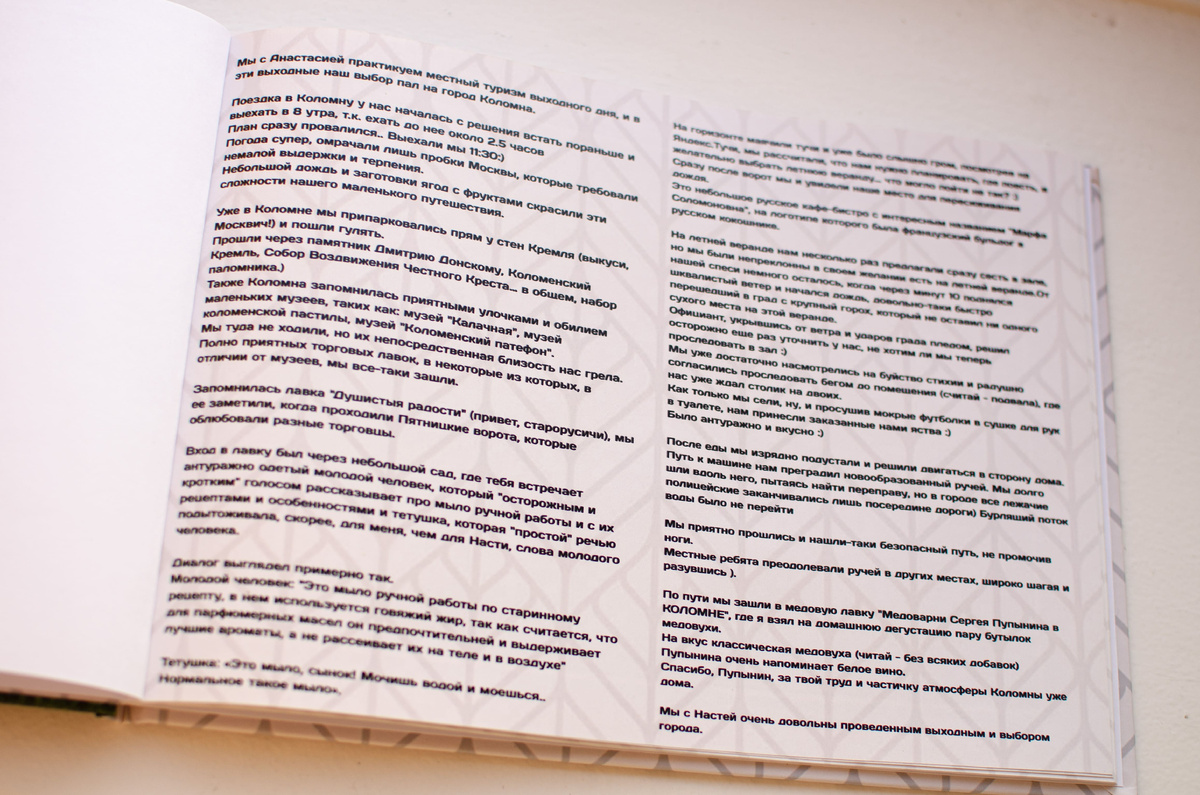 Мы с Анастасией практикуем местный туризм выходного дня, и в
эти выходные наш выбор пал на город Коломна.
Поездка в Коломну у нас началась с решения встать пораньше и
выехать в 8 утра, т.к. ехать до нее около 2.5 часов
План сразу провалился.. Выехали мы 11:30:)
Погода супер, омрачали лишь пробки Москвы, которые требовали
немалой выдержки и терпения.
Небольшой дождь и заготовки ягод с фруктами скрасили эти
сложности нашего маленького путешествия.
Уже в Коломне мы припарковались прям у стен Кремля (выкуси,
Москвич!) и пошли гулять.
Прошли через памятник Дмитрию Донскому, Коломенский
Кремль, Собор Воздвижения Честного Креста... в общем, набор
паломника.)
Также Коломна запомнилась приятными улочками и обилием
маленьких музеев, таких как: музей "Калачная", музей
коломенской пастилы, музей "Коломенский патефон".
Мы туда не ходили, но их непосредственная близость нас грела.
Полно приятных торговых лавок, в некоторые из которых, в
отличии от музеев, мы все-таки зашли.
Запомнилась лавка "Душистыя радости" (привет, старорусичи), мы
ее заметили, когда проходили Пятницкие ворота, которые
облюбовали разные торговцы.
Вход в лавку был через небольшой сад, где тебя встречает
антуражно одетый молодой человек, который "осторожным и
кротким" голосом рассказывает про мыло ручной работы и с их
рецептами и особенностями и тетушка, которая "простой" речью
подытоживала, скорее, для меня, чем для Насти, слова молодого
человека.
Диалог выглядел примерно так.
Молодой человек: "Это мыло ручной работы по старинному
рецепту, в нем используется говяжий жир, так как считается, что
для парфюмерных масел он предпочтительней и выдерживает
лучшие ароматы, а не рассеивает их на теле и в воздухе"
Тетушка: «Это мыло, сынок! Мочишь водой и моешься..
Нормальное такое мыло».
На горизонте маячили тучи и уже было слышно гром, посмотрев на
Яндекс.Тучи, мы рассчитали, что нам нужно планировать, где поесть, и
желательно выбрать летнюю веранду... что могло пойти не так? :)
Сразу после ворот мы и увидели наше место для пересиживания
дождя.
Это небольшое русское кафе-бистро с интересным названием "Марфа
Соломоновна", на логотипе которого была французский бульдог в
русском кокошнике.
На летней веранде нам несколько раз предлагали сразу сесть в зале,
но мы были непреклонны в своем желании есть на летней веранде.От
нашей спеси немного осталось, когда через минут 10 поднялся
шквалистый ветер и начался дождь, довольно-таки быстро
перешедший в град с крупный горох, который не оставил ни одного
сухого места на этой веранде.
Официант, укрывшись от ветра и ударов града пледом, решил
осторожно еще раз уточнить у нас, не хотим ли мы теперь
проследовать в зал :)
Мы уже достаточно насмотрелись на буйство стихии и радушно
согласились проследовать бегом до помещения (считай - подвала), где
нас уже ждал столик на двоих.
Как только мы сели, ну, и просушив мокрые футболки в сушке для рук
в туалете, нам принесли заказанные нами яства :)
Было антуражно и вкусно :)
После еды мы изрядно подустали и решили двигаться в сторону дома.
Путь к машине нам преградил новообразованный ручей. Мы долго
шли вдоль него, пытаясь найти переправу, но в городе все лежачие
полицейские заканчивались лишь посередине дороги) Бурлящий поток
воды было не перейти
Мы приятно прошлись и нашли-таки безопасный путь, не промочив
ноги.
Местные ребята преодолевали ручей в других местах, широко шагая и
разувшись ).
По пути мы зашли в медовую лавку "Медоварни Сергея Пупынина в
КОЛОМНЕ", где я взял на домашнюю дегустацию пару бутылок
медовухи.
На вкус классическая медовуха (читай - без всяких добавок)
Пупынина очень напоминает белое вино.
Спасибо, Пупынин, за твой труд и частичку атмосферы Коломны уже
дома.
Мы с Настей очень довольны проведенным выходным и выбором
города.